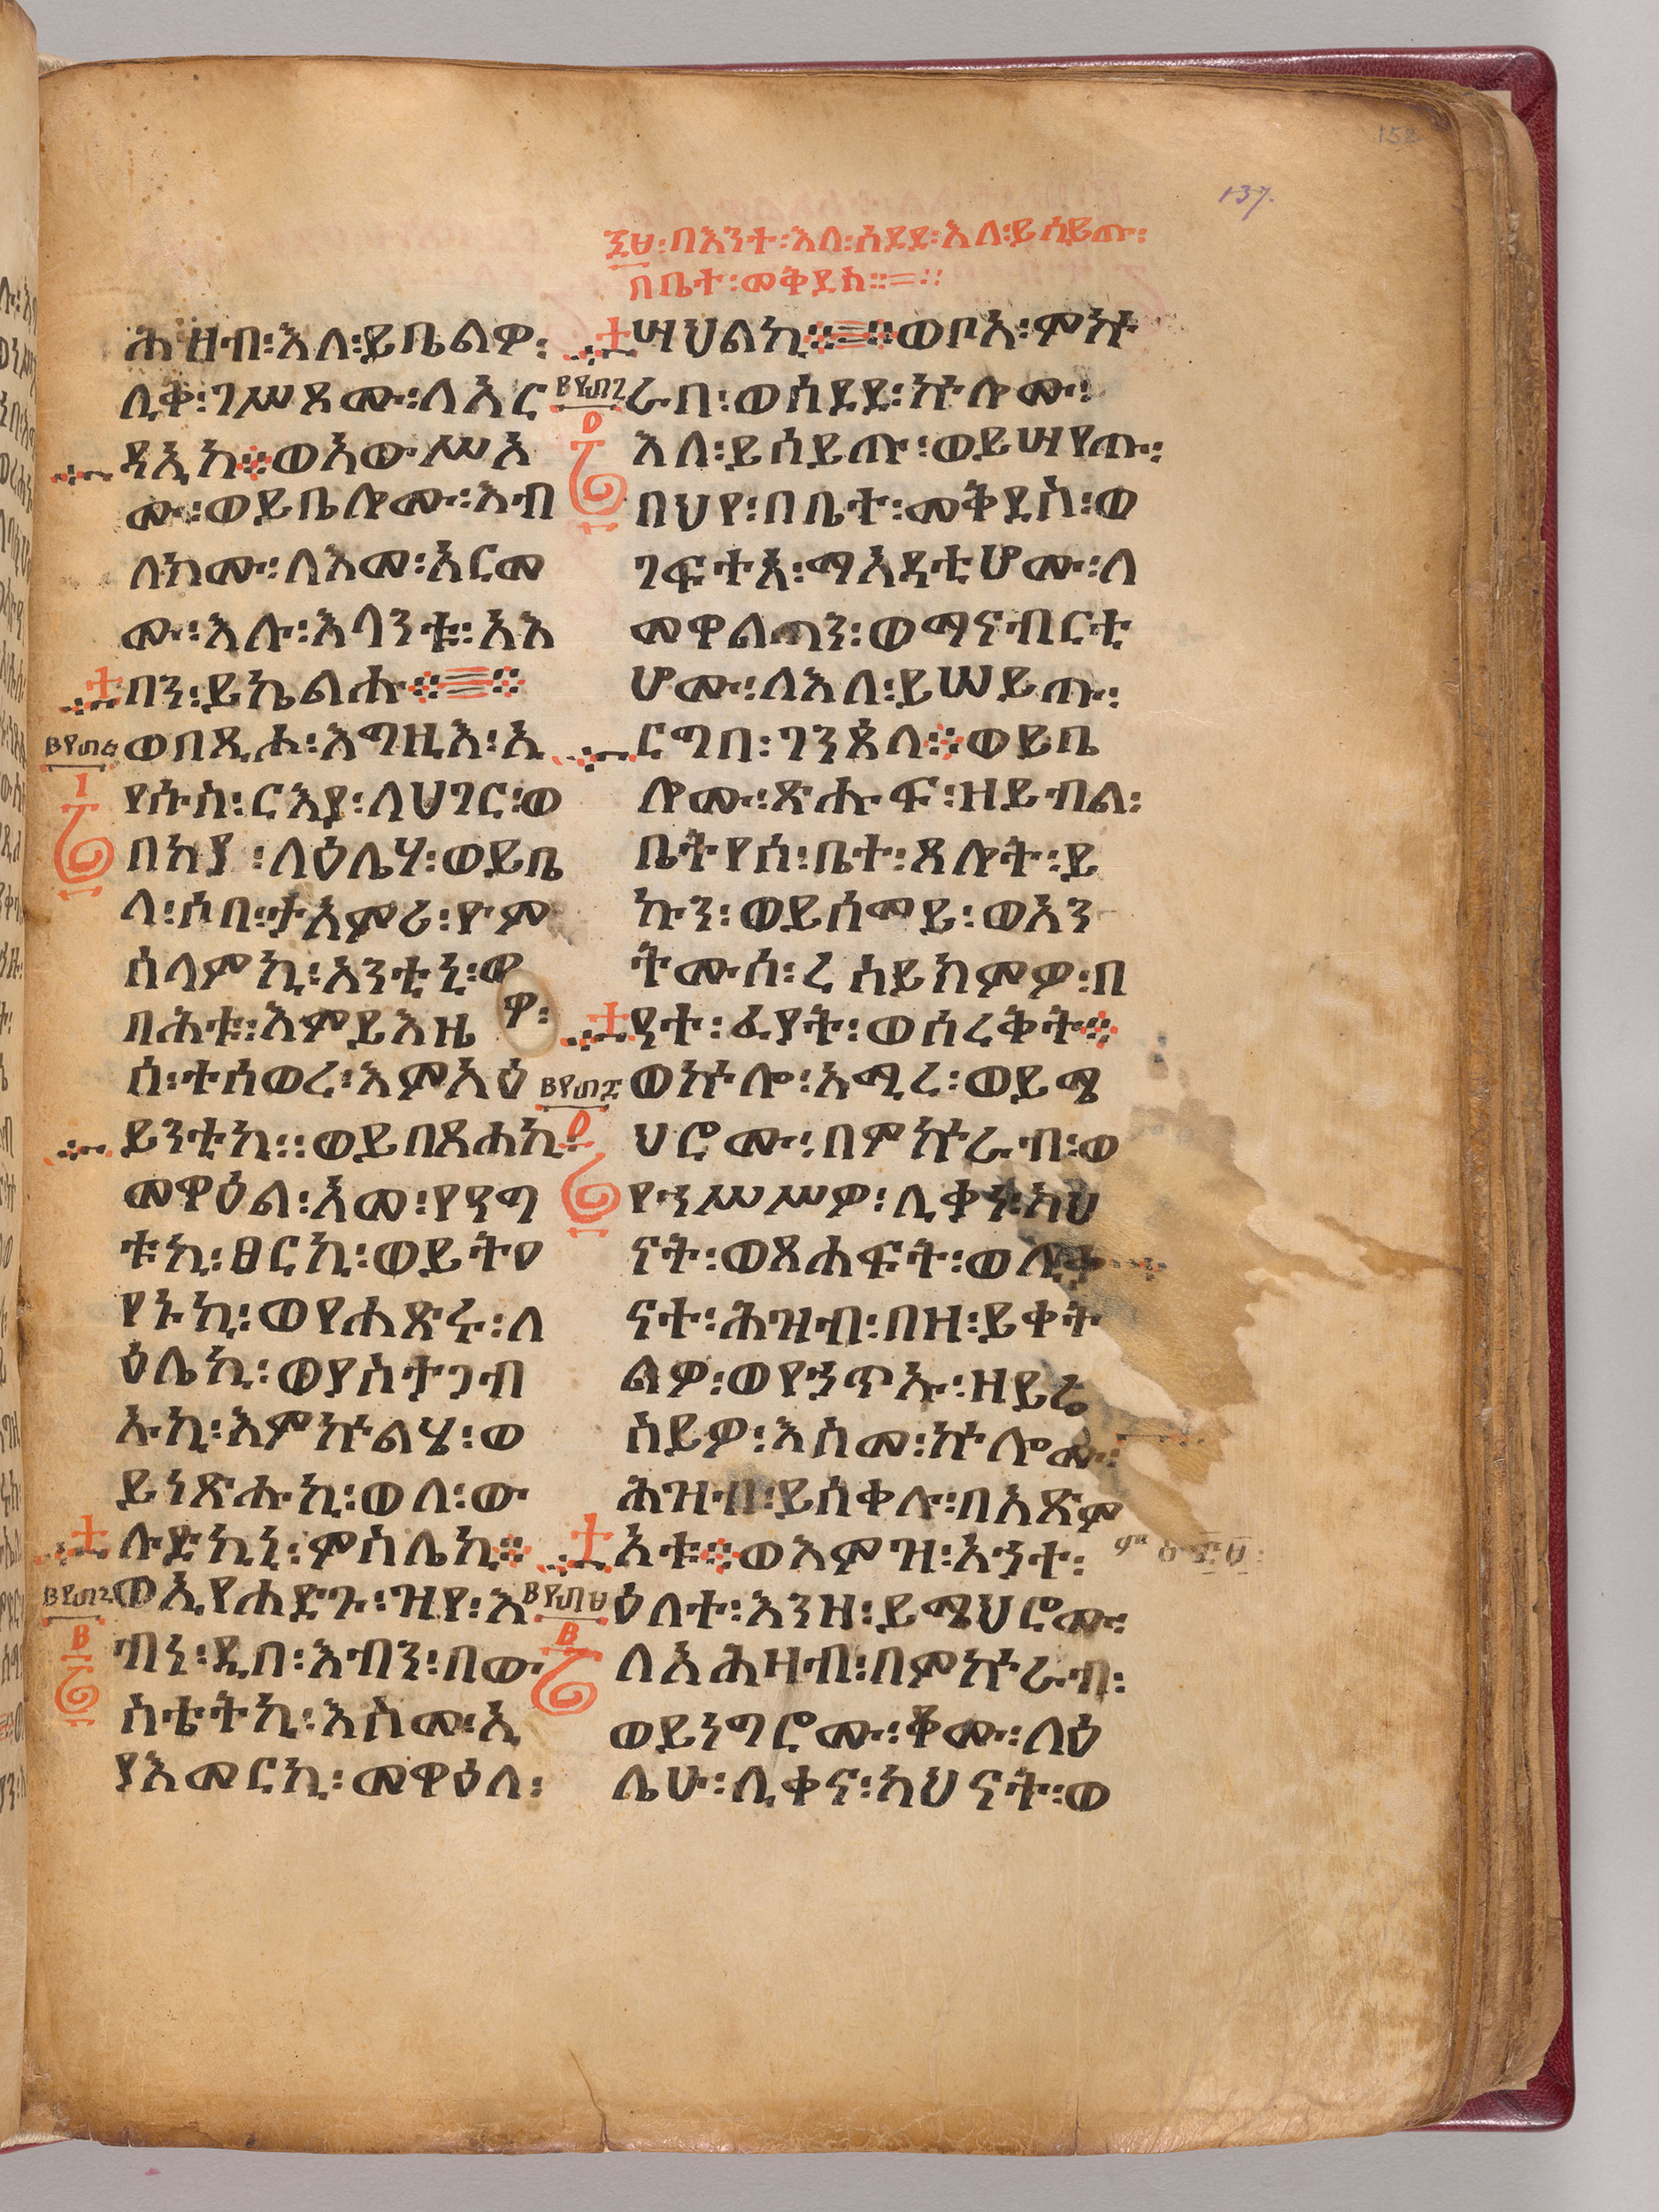 152
137.
፸፱፡በእንተ፡እለ፡ሰደደ፡እለ፡ይሰይጡ፡
በቤተ፡መቅደስ።=።
ሕዘብ፡እለ፡ይቤልዎ፡
ሊቅ፡ገሥጾሙ፡ለአር
ዳኢከ።ወአውሥአ
ሙ፡ወይቤሎሙ፡እብ
ለክሙ፡ለእመ፡አርመ
ሙ፡እሉ፡እላንቱ፡አእ
በን፡ይኬልሑ።=።
ወበጺሖ፡እግዚእ፡ኢ
የሱስ፡ርእያ፡ለሀገር፡ወ
በከያ፡ለዕሌሃ፡ወይቤ
ላ፡ሶበ፡ታአምሪ፡ዮም
ሰላምኪ፡አንቲኒ፡ወ
በሕቱ፡እምይእዜ
ዋ፡
ሰ፡ተሰወረ፡እምአዕ
ይንቲኪ፡፡ወይበጽሐኪ፡
መዋዕል፡አመ፡የዓግ
ቱኪ፡ፀርኪ፡ወይትዐ
የኑኪ፡ወየሐጽሩ፡ለ
ዕሌኪ፡ወያስተጋብ
ኡኪ፡እምኵልሄ፡ወ
ይነጽሑኪ፡ወለ፡ው
ሉድኪኒ፡ምስሌኪ።
ወኢየሐድጉ፡ዝየ፡እ
ብነ፡ዲበ፡እብን፡በው
ስቴትኪ፡እስመ፡ኢ
ያእመርኪ፡መዋዕለ፡
ሣህልኪ።=።ወቦአ፡ምኵ
ራበ፡ወሰደደ፡ኵሎሙ፡
እለ፡ይሰይጡ፡ወይሣየጡ፡
በህየ፡በቤተ፡መቅደስ፡ወ
ገፍተአ፡ማእዳቲሆሙ፡ለ
መዋልጣን፡ወማናብርቲ
ሆሙ፡ለእለ፡ይሠይጡ፡
ርግበ፡ገንጰለ።ወይቤ
ሎሙ፡ጽሑፍ፡ዘይብል፡
ቤትየሰ፡ቤተ፡ጸሎት፡ይ
ኩን፡ወይሰመይ፡ወእን
ትሙሰ፡ረሰይክምዎ፡በ
ዓተ፡ፈያት፡ወሰረቅት።
ወኵሎ፡አሚረ፡ወይሜ
ህሮሙ፡በምኵራብ፡ወ
የኀሥሥዎ፡ሊቃነ፡ካህ
ናት፡ወጸሐፍት፡ወሊቃ
ናተ፡ሕዝብ፡በዘ፡ይቀት
ልዎ፡ወየኀጥኡ፡ዘይሬ
ስይዎ፡እስመ፡ኵሎሙ፡
ሕዝብ፡ይሰቀሉ፡በአጽም
አቱ።ወእምዝ፡አኀተ፡
ዕለተ፡እንዘ፡ይሜህሮሙ፡
ለአሕዛብ፡በምኵራብ፡
ወይነግሮሙ፡ቆሙ፡ለዕ
ሌሁ፡ሊቃና፡ካህናት፡ወ